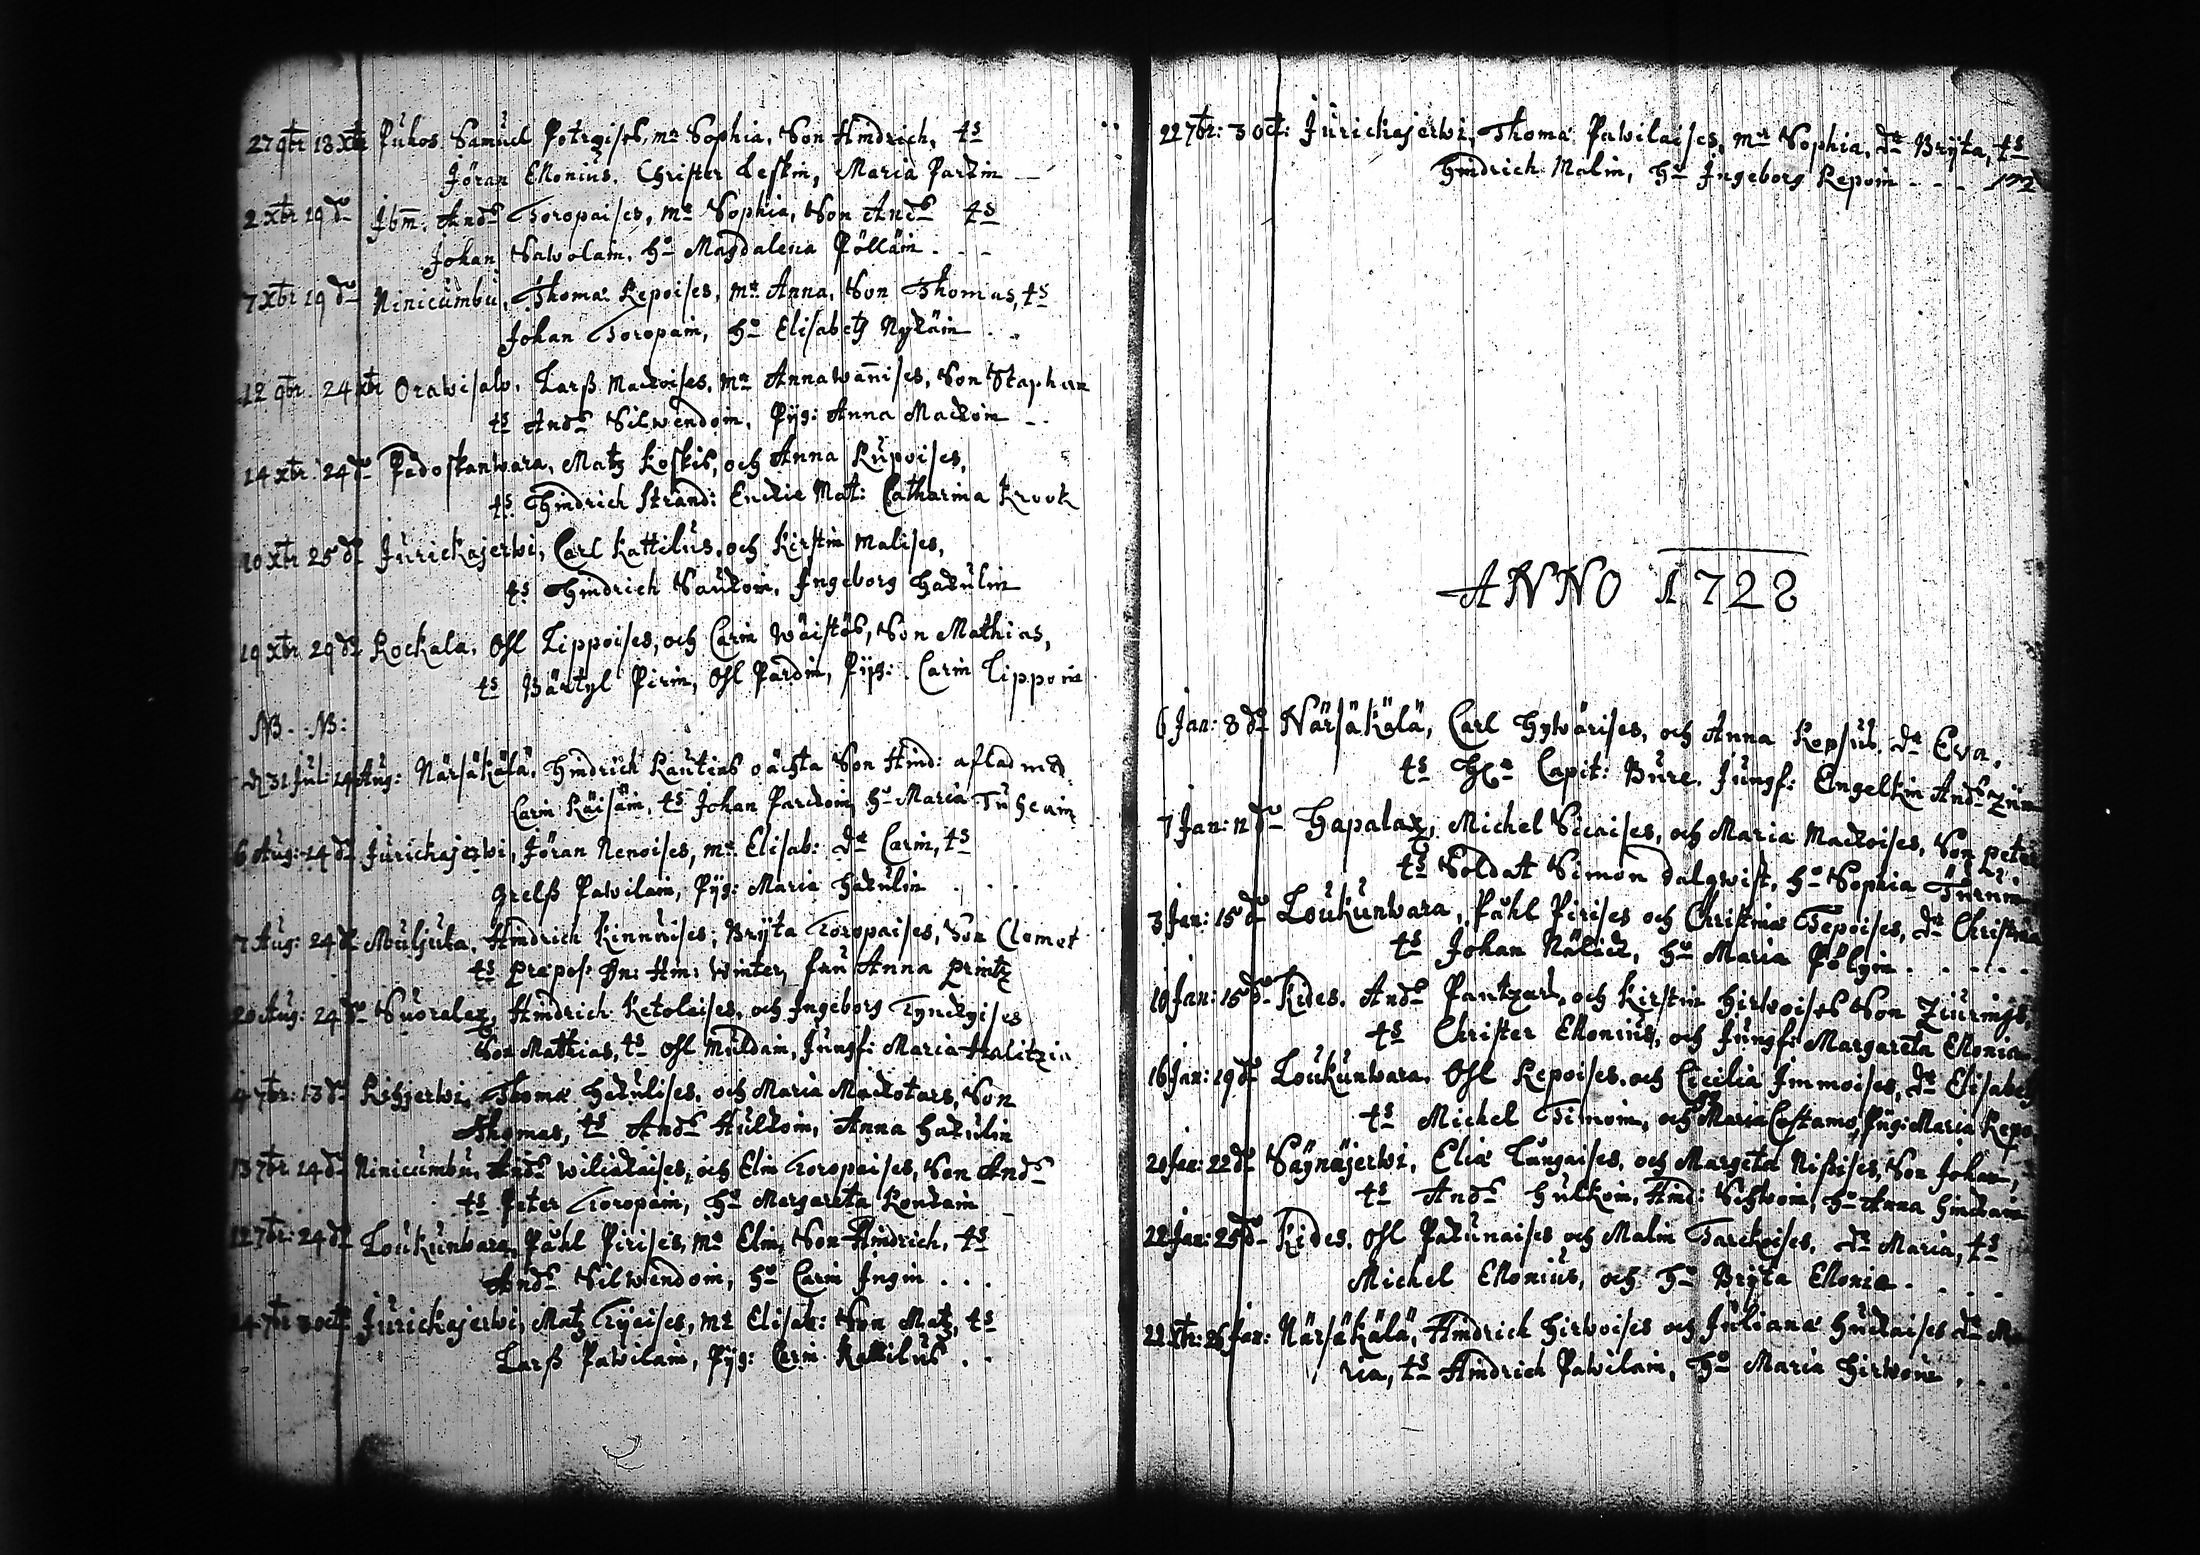 27 9br 18 Xbr Pukos. Samuel Potrgises, mr Sophia. Son Hindrich, ts
Jöran Ellonius. Christer Leskin, Maria Parkin
2 xbr 19 do Ibm. Ands Toropaises, mr Sophia, Son Ands ts
Johan Sawolain. ho Magdalena Pölläin
7 xbr 19 do Ninicumbu, Thomæ Repoises, mr Anna, Son Thomas, ts
Johan Toropain, ho Elisabetz Nykäin
12 9br. 24 xbr Orawisalo. Larß Mackoises. mr Annawañises, Son Staphan
ts Ands Silwendoin, Pijg: Anna Mackoin
14 xbr. 24 do Pedoskanwara, Matz Koskis, och Anna Rupoises,
ts Hindrich Strand: Enckie Mat: Catharina Krook
10 xbr 25 do Jurickajerwi, Carl Kattilus, och Kirstin Malises,
ts Hindrich Saukoin, Ingeborg Hakulin
19 xbr 29 do Rockala. Ohl Lippoises, och Carin Wäistös, Son Mathias,
ts Bärtyl Pirin, Ohl Pardin, Pijg: Carin Lippoin
NB. NB:
d 31 Jul: 14 Aug: Närsäkälä. Hindrich Rautias oächta Son Hind: aflad med
Carin Räisäin, ts Johan Parckoin, ho Maria Tuheain
6 Aug: 14 do Jurickajerwi, Jöran Nenoises, mr Elisab: dr Carin, ts
Grelß Pawilain, Pijg: Maria Hakulin
7 Aug: 24 do Muljula. Hindrich Kinnuises, Bryta Toropaises, Son Clemet
ts Præpos: Hn: Hm: Winter, fru Anna Printz
20 Aug: 24 do Suoralax, Hindrich Ketolaises, och Ingeborg Tynckyises
Son Mathias, ts Ohl Muldain, Jungf: Maria Halitzia
4 7br: 13 do Rihjerwi, Thomæ Hakulises, och Maria Mackotars, Son
Thomas, ts Ands Hulkoin, Anna Hakulin
13 7br 14 do Ninicumbu, Ands Wiliackaises, och Elin Toropaises, Son Ands
ts Peter Toropain, ho Margareta Konkain
12 7br: 24 do Loukunwara, Påhl Pirises, mr Elin, Son Hindrich, ts
Ands Silwendoin, ho Carin Ingin . . .
24 7br 3 oct: Jurickajerwi, Matz Tyjaises, mr Elisab: Son Matz, ts
Larß Pawilain, Pijg: Carin Kattilus . .
22 7br: 3 Oct: Jurickajerwi, Thomæ Pawilaises, mr Sophia, dr Bryta, ts
Hindrich Malin, ho Ingeborg Repoin - - - 172
ANNO 1728
6 Jan: 8 do Närsäkälä, Carl Hywärises, och Anna Repsus. dr Eva.
ts HCr Capit: Bure. Jungf: Engelkin Ands
7 Jan: 12 do Hapalax, Michel Sicaises, och Maria Mackoises, Son Peter
ts Soldat Simon Dalqwist, ho Sophia Turunin
3 Jan: 15 do Loukunwara, Påhl Pirises och Christina Tepoises, dr Christina
ts Johan Nälick, ho Maria Pölyin . . . . .
10 Jan: 15 do Kides. Ands Pantzar, och Kirstin Hirwoises Son
ts Christer Ellonius, och Jungf: Margareta Ellonia
16 Jan: 19 do Loukunwara. Ohl Repoises, och Cicilia Immoises, dr Elisabetz
ts Michel Timoin, och Maria Costamo, Pijg: Maria Repo
20 Jan: 22 do Säynäjerwi, Eliæ Tungaises, och Margeta Nißises, Son Johan,
ts Ands Hulkoin, Hind: Sihwoin, ho Anna Hinckain
22 Jan: 25 do Kides. Ohl Pakunaises och Malin Tarckoises. dr Maria, ts
Michel Ellonius, och ho Bryta Ellonia
22 Xbr: 26 Jan: Närsäkälä, Hindrich Hirwoises och Juliana Huckaises dr Ma
ria, ts Hindrich Pawilain, ho Maria Hirwoin . . .